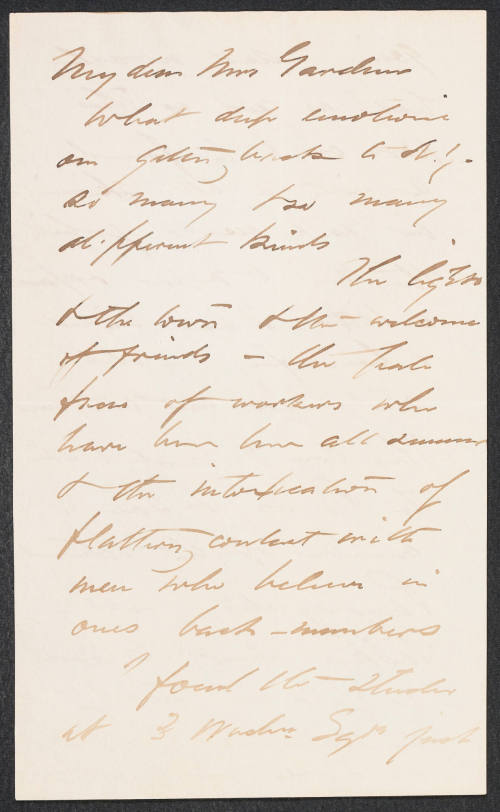 My dear Mrs Gardner
What deep emotions
on getting back to N.Y.
so many & so many
different kinds
The lights
& the town & the welcome
of friends – the pale
faces of workers who
have been here all summer
& the intoxication of
flattering contact with
men who believe in
ones back-numbers
I found the studio
at 3 Washn Sqre just